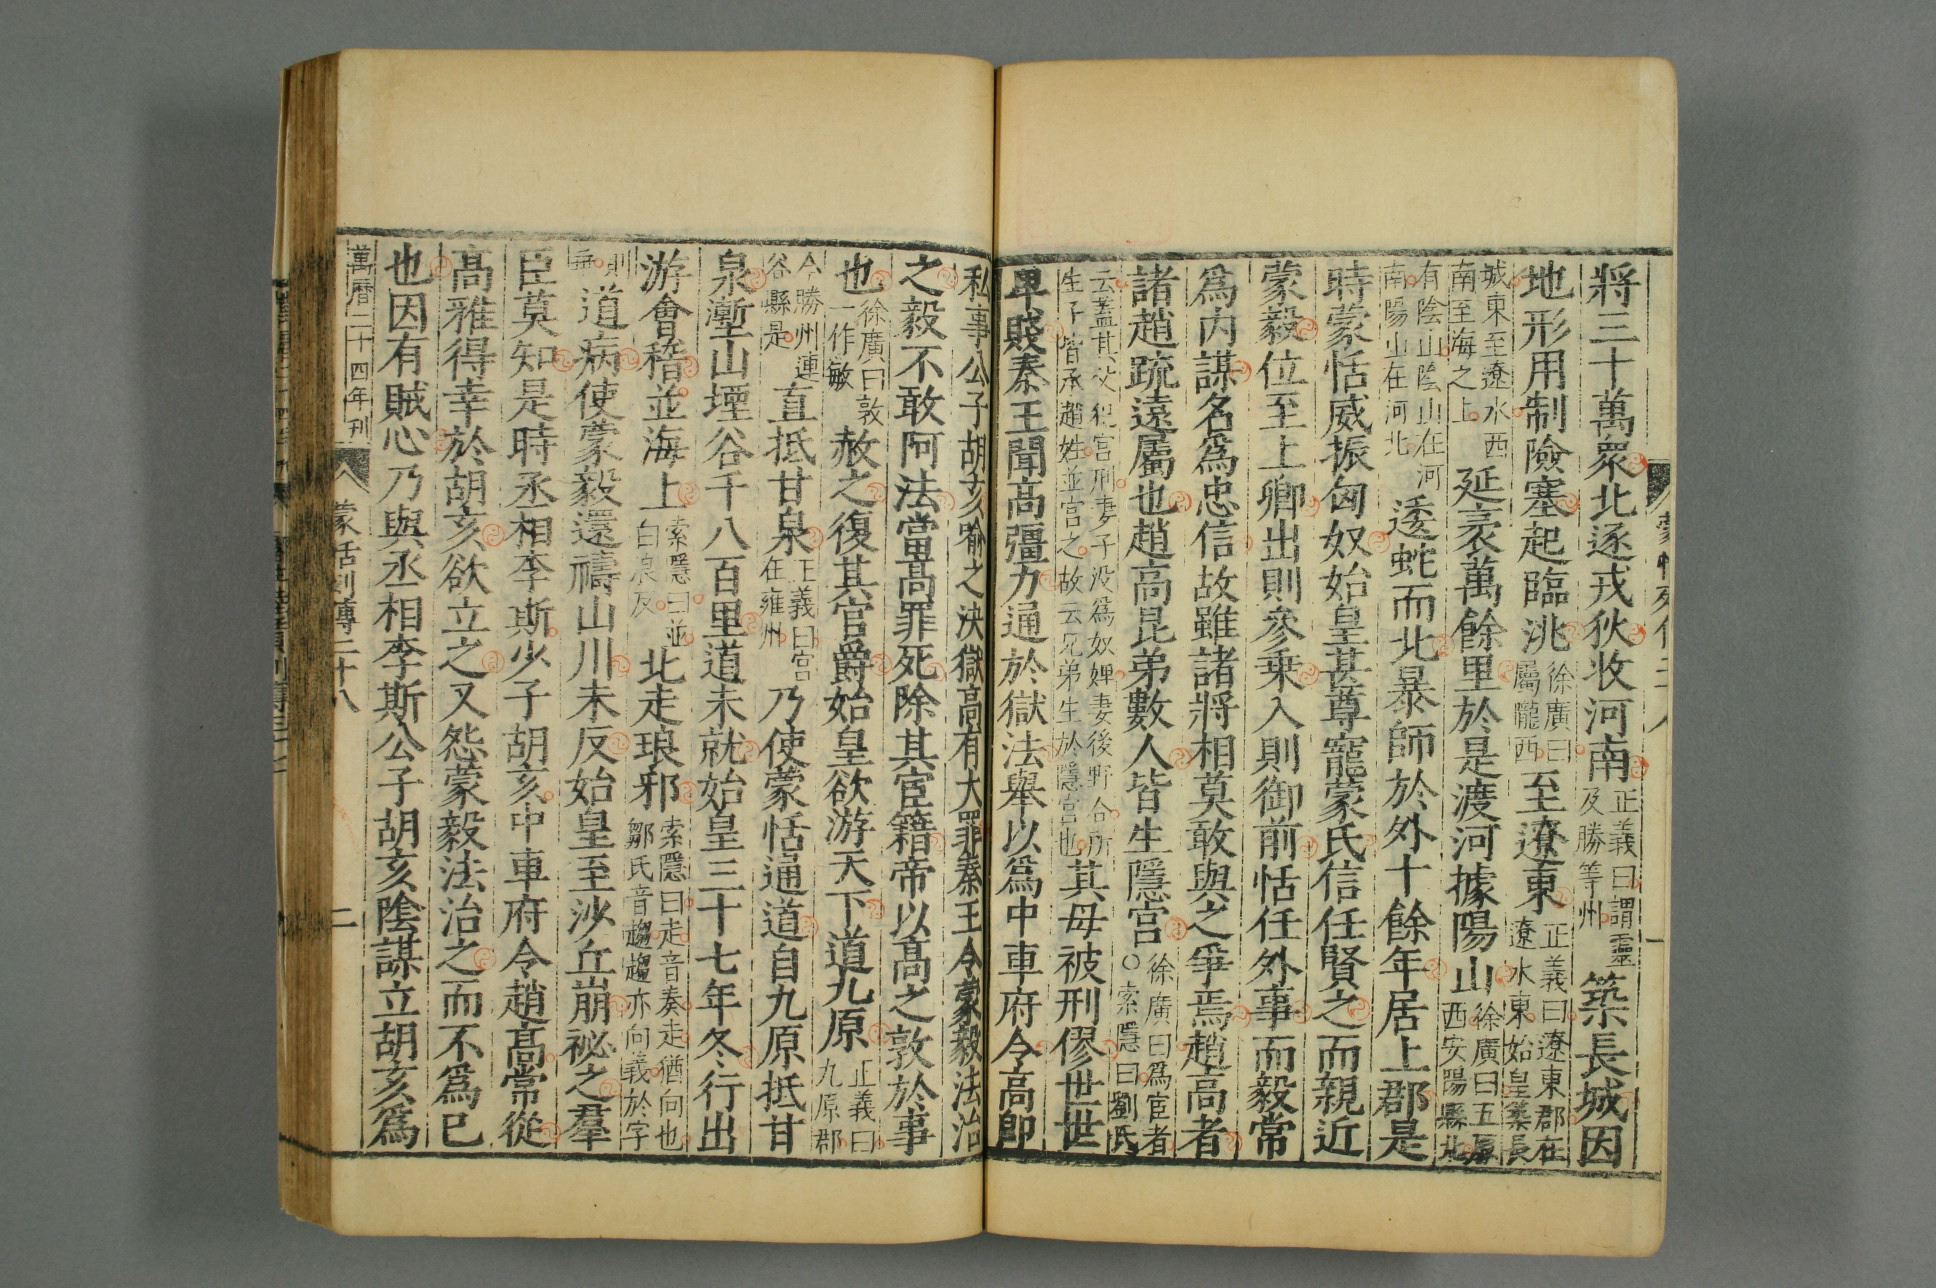 將三十萬衆北逐戎狄收河南正義曰謂靈及勝等州築長城因
地形用制險塞起臨洮徐廣曰屬隴西至遼東正義曰遼東郡在遼水東始皇築長
城東至遼水西南至海之上延袤萬餘里於是渡河據陽山徐廣曰五原西安陽縣北
有陰山陰山在河南陽山在河北逶蛇而北暴師於外十餘年居上郡是
時蒙恬威振匈奴始皇甚尊寵蒙氏信任賢之而親近
蒙毅位至上卿出則參乗入則御前恬任外事而毅常
爲内謀名爲忠信故雖諸將相莫敢與之爭焉趙高者
諸趙疏遠屬也趙高昆弟數人皆生隱宫徐廣曰爲宦者○索隱曰劉氏
云蓋其父犯宫刑妻子没爲奴婢妻後野合所生子皆承趙姓並宫之故云兄弟生於隱宫也其母被刑僇世世
卑賤秦王聞高彊力通於獄法舉以爲中車府令高卽
私事公子胡亥喻之決獄高有大罪秦王令蒙毅法治
之毅不敢阿法當高罪死除其宦籍帝以高之敦於事
也徐廣曰敦一作敏赦之復其官爵始皇欲游天下道九原正義曰九原郡
今勝州連谷縣是直抵甘泉正義曰宫在雍州乃使蒙恬通道自九原抵甘
泉壍山堙谷千八百里道未就始皇三十七年冬行出
游會稽並海上索隱曰並白浪反北走琅邪索隱曰走音奏走猶向也鄒氏音趨趨亦向義於字
則無道病使蒙毅還禱山川未反始皇至沙丘崩祕之羣
臣莫知是時丞相李斯少子胡亥中車府令趙高常從
高雅得幸於胡亥欲立之又怨蒙毅法治之而不爲已
也因有賊心乃與丞相李斯公子胡亥陰謀立胡亥爲
萬曆二十四年刊
蒙恬列傳二十八
二